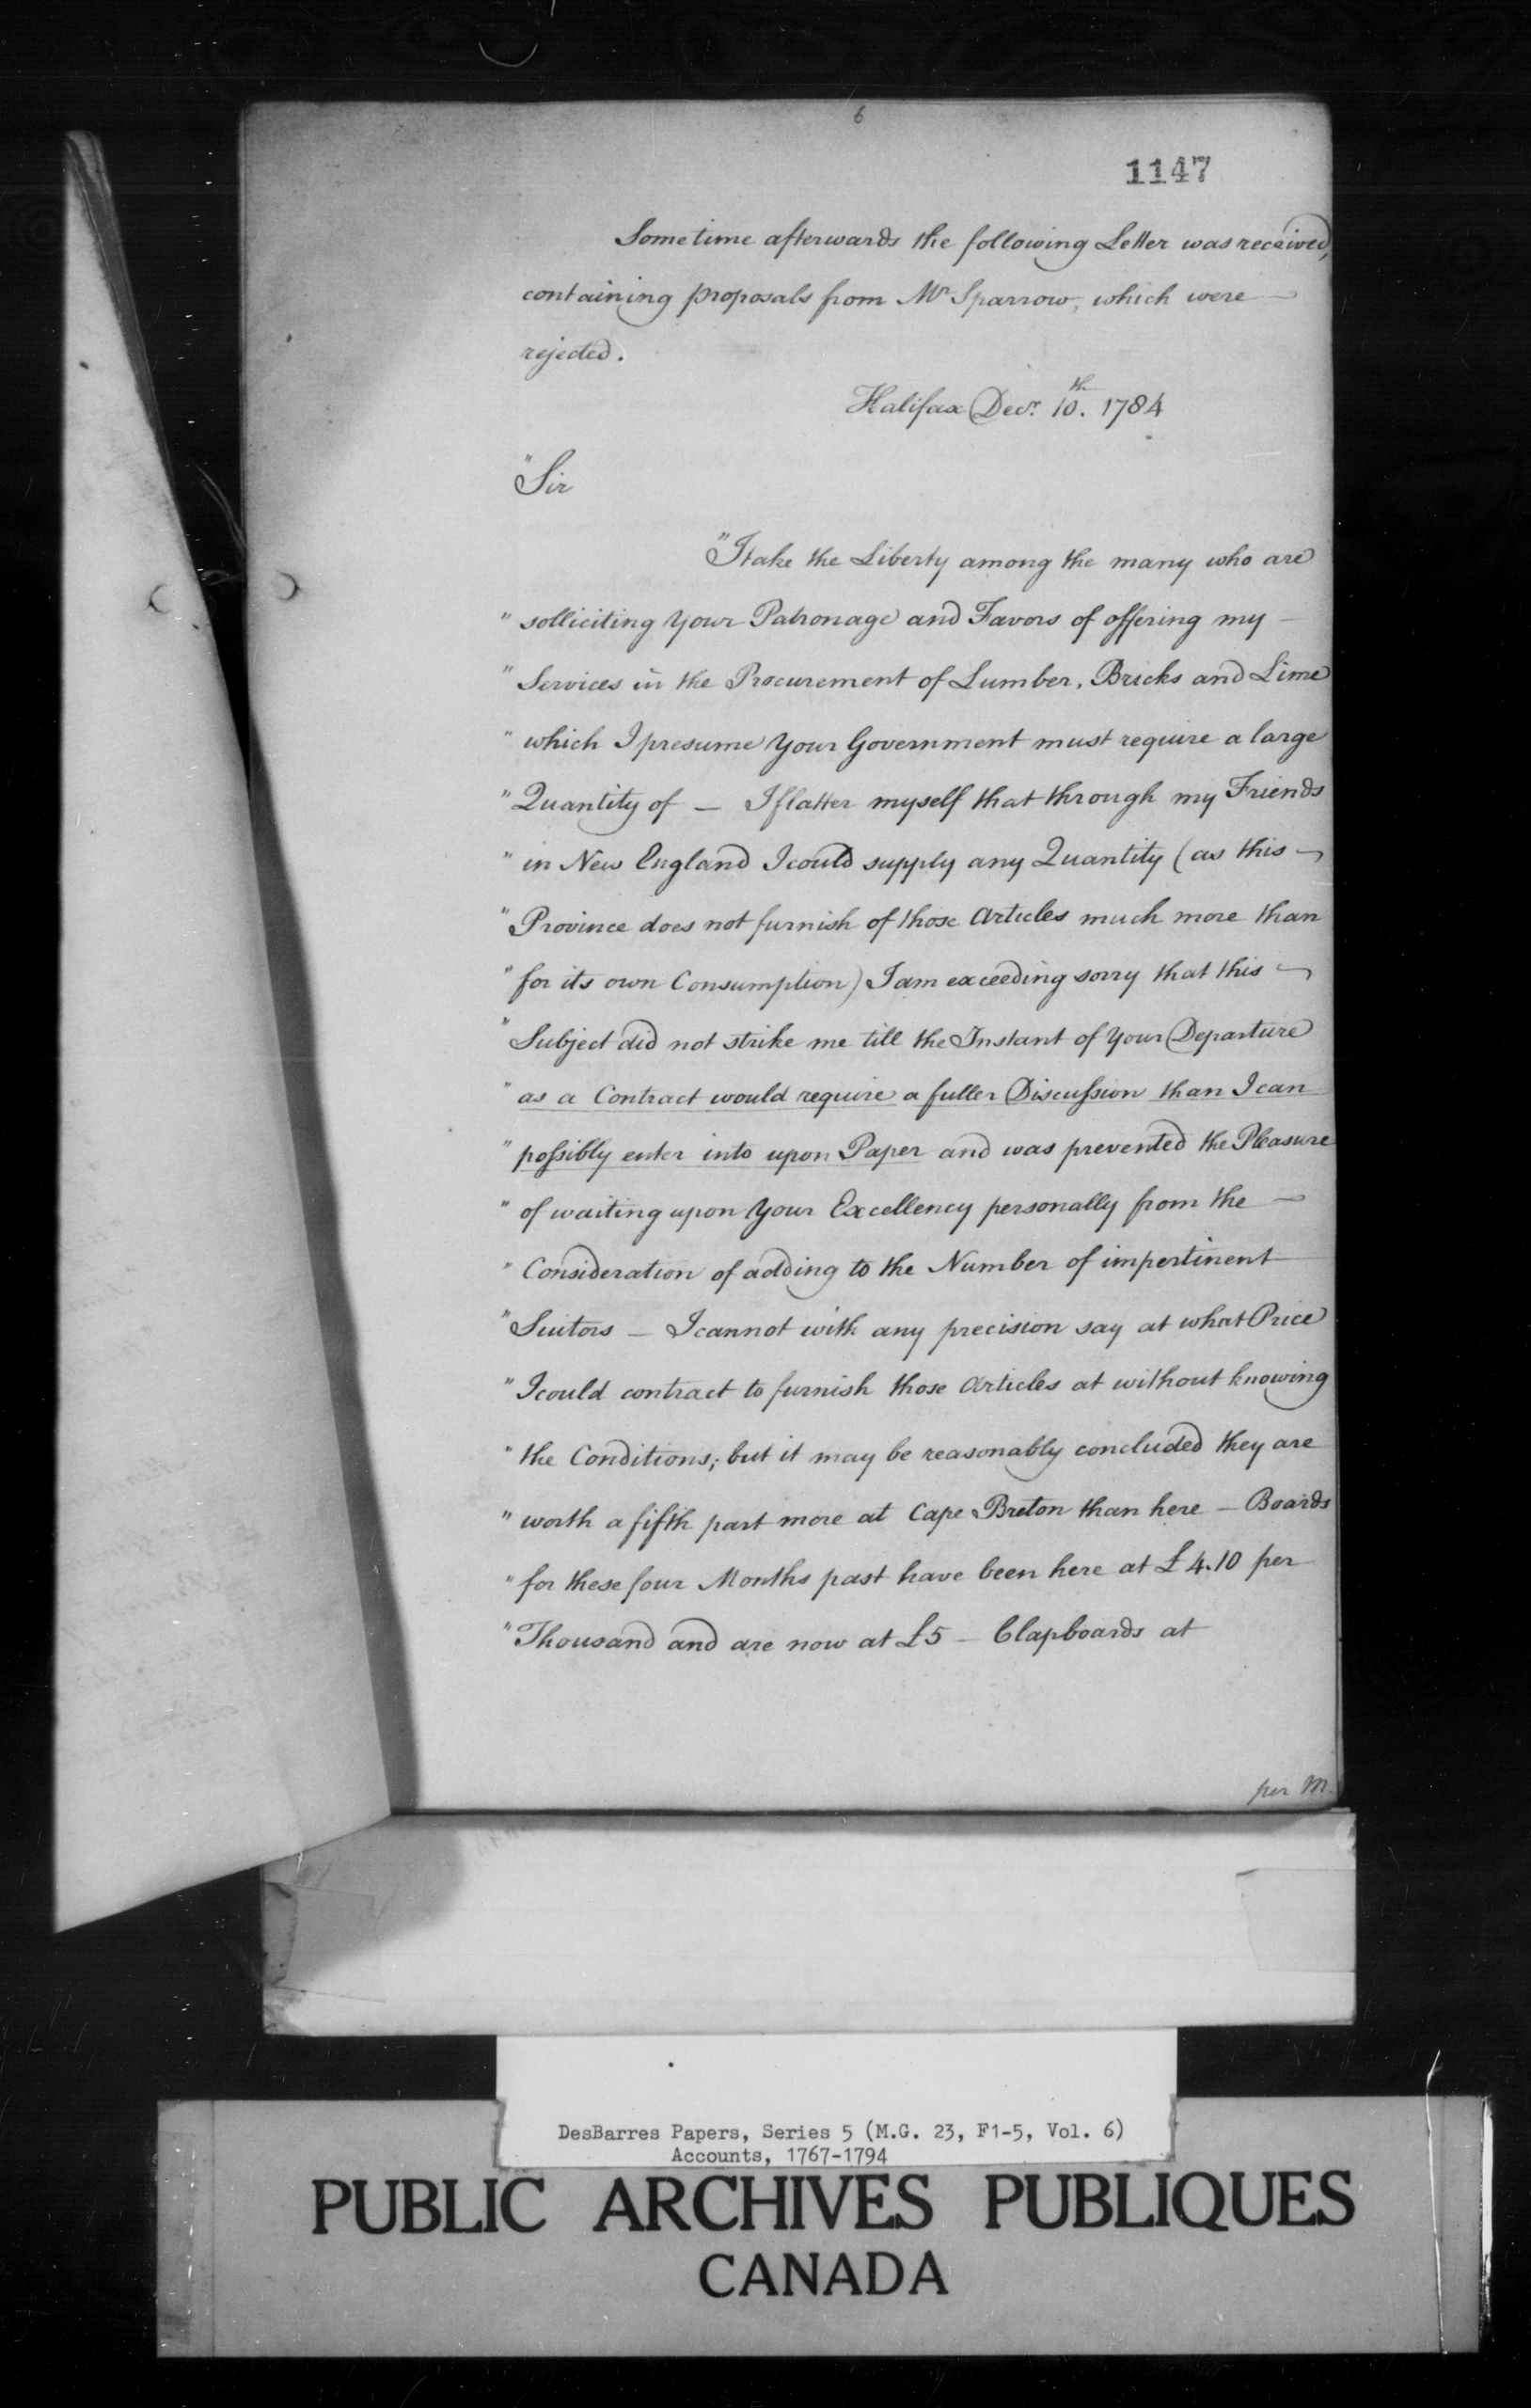 6
1147
Sometime afterwards the following Letter was received,
containing proposals from Mr Sparrow, which were —
rejected.
Halifax Decr. 10th. 1784
"Sir
"I take the Liberty among the many who are
" solliciting Your Patronage and Favors of offering my —
" Services in the Procurement of Lumber, Bricks and Lime
" which I presume Your Government must require a large
" Quantity of — I flatter myself that through my Friends
" in New England I could supply any Quantity (as this —
" Province does not furnish of those Articles much more than
" for its own Consumption) I am exceeding sorry that this —
" Subject did not strike me till the Instant of Your Departure
" as a Contract would require a fuller Discussion than I can
" possibly enter into upon Paper and was prevented the Pleasure
" of waiting upon Your Excellency personally from the —
" Consideration of adding to the Number of impertinent
" Suitors — I cannot with any precision say at what Price
" I could contract to furnish those Articles at without knowing
" the Conditions; but it may be reasonably concluded they are
" worth a fifth part more at Cape Breton than here — Boards
" for these four Months past have been here at £4.10 per
" Thousand and are now at £5 — Clapboards at
per M.
DesBarres Papers, Series 5 (M.G. 23, F1-5, Vol. 6)
Accounts, 1767-1794
PUBLIC ARCHIVES PUBLIQUES
CANADA